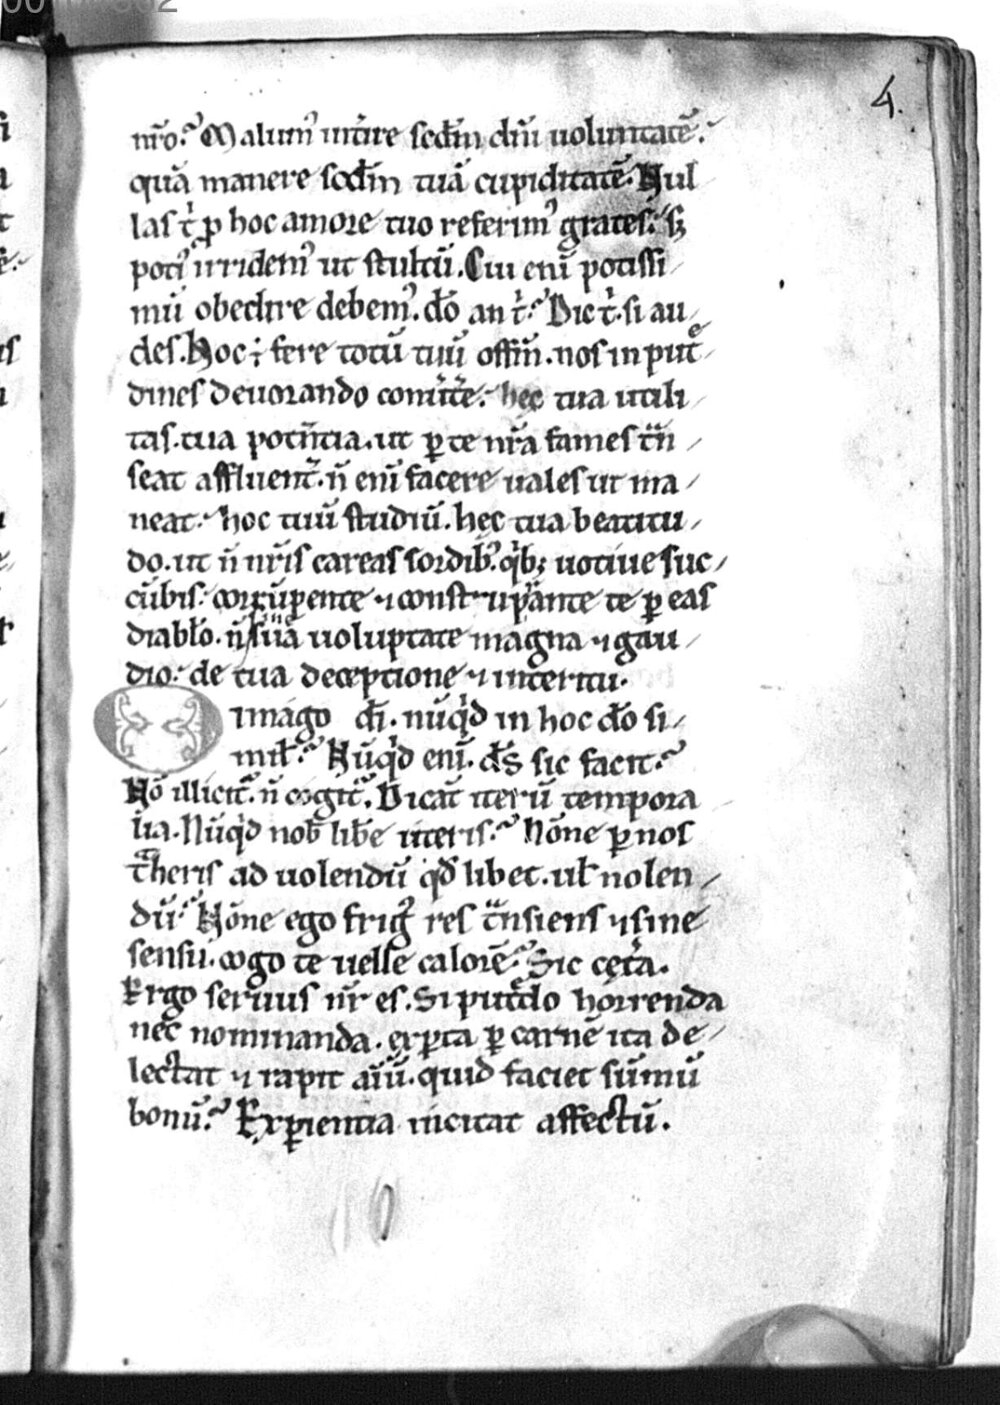 4.
nr̄o.՚ Malum᷒ intire scd̄m dm̄ uoluntatē.
quā manere scd̄m tuā cupiditatē. Nul
las t̄ p̱ hoc amore tuo referim᷒ grates. sꝫ
poti᷒ irridem᷒ ut stultū. Cui enī potissi
mū obedire debem᷒. dō an t̄. Dic t̄. si au
des. Hoc ÷ fere totū tuū offm̄. nos in put
dines deuorando com̄tē. hęc tua utili
tas. tua potn̄tia. ut ꝑ te nr̄a fames tn̄
seat affluent̄. n̄ enī facere uales ut ma
neat. hoc tuū studiū. hęc tua beatitu
do. ut n̄ nr̄is careas sordib᷒. qi̇bꝫ uotiue suc
cūbis. corrūpente ⁊ constupante te ꝑ eas
diablo. n̄ sua uoluptate magna ⁊ gau
dio. de tua deceptione ⁊ interitu.
O imago dī. nūqi̇d in hoc dō si
mil̄. Nūqi̇d enī. d̄s sic facit.
Nō illicit̄. n̄ cogit̄. Dicat̄ iterū tempora
lia. Nūqi̇d nob̄ lib̄e iteris. Nōne ꝑ nos
t̄heris ad uolendū qd̄ libet. ul̄ nolen
dū. Nōne ego frig᷒ res tn̄siens ⁊ sine
sensu. cogo te uelle calorē. Sic cęt̄a.
Ergo seruus nr̄ es. Si putd̄o horrenda
nec nominanda. exꝑta ꝑ carnē ita de
lectat ⁊ rapit aīū. quid faciet sūmū
bonū. Exꝑientia incitat affectū.